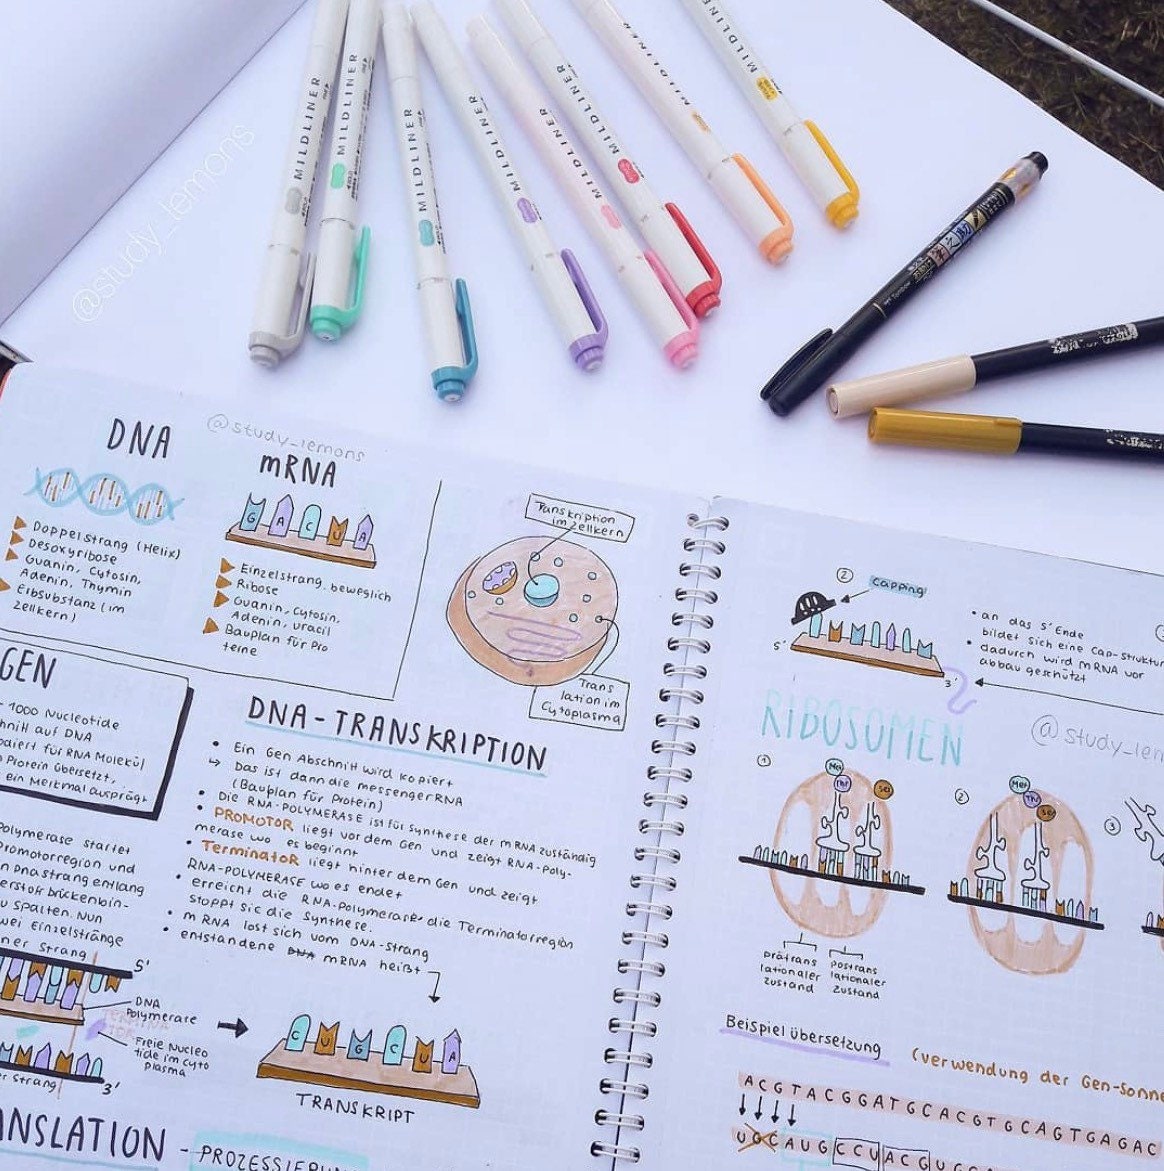 @study_lemons
MILDLINER
MILDLINER
MILDLINER
MILDLINER
MILDLINER
MILDLINER
MILDLINER
MILDLINER
DNA
Doppelstrang (Helix)
Desoxyribose
Guanin, Cytosin,
Adenin, Thymin
Erbsubstanz (im
Zellkern)
@study_lemons
mRNA
G A C U A
Einzelstrang, beweglich
Ribose
Guanin, Cytosin,
Adenin, Uracil
Bauplan für Pro
teine
Transkription
im Zellkern
Trans
lation im
Cytoplasma
GEN
1000 Nucleotide
hnitt auf DNA
für RNA Molekül
Protein übersetzt,
ein Merkmal ausprägt
DNA-TRANSKRIPTION
Ein Gen Abschnitt wird kopiert
↳ Das ist dann die messengerRNA
(Bauplan für Protein)
• Die RNA-POLYMERASE ist für Synthese der mRNA zuständig
• PROMOTOR liegt vor dem Gen und zeigt RNA-Poly-
merase wo es beginnt
• Terminator liegt hinter dem Gen und zeigt
RNA-POLYMERASE wo es endet
erreicht die RNA-Polymerase die Terminatorregion
stoppt sie die Synthese.
• mRNA löst sich vom DNA-strang
• entstandene DNA mRNA heißt
Polymerase startet
romotorregion und
n DNAstrang entlang
erstoff brückenbin-
u spalten. Nun
wei Einzelstränge
ner Strang)
5'
DNA
Polymerase
Freie Nucleo
tide im cyto
plasma
er Strang)
3'
C U G C U A
TRANSKRIPT
ANSLATION - PROZESSIERUN
② Capping
5'
3'
• an das 5' Ende
bildet sich eine Cap-Struktur
• dadurch wird mRNA vor
abbau geschützt
RIBOSOMEN
@study_lem
① Met Thr Ser
② Met Thr Ser
③
prätrans
lationaler
zustand
postrans
lationaler
zustand
Beispiel übersetzung
(verwendung der Gen-Sonne
ACGTACGGATGCACGTGCAGTGAGAC
UGCAUGCCUACGUGC